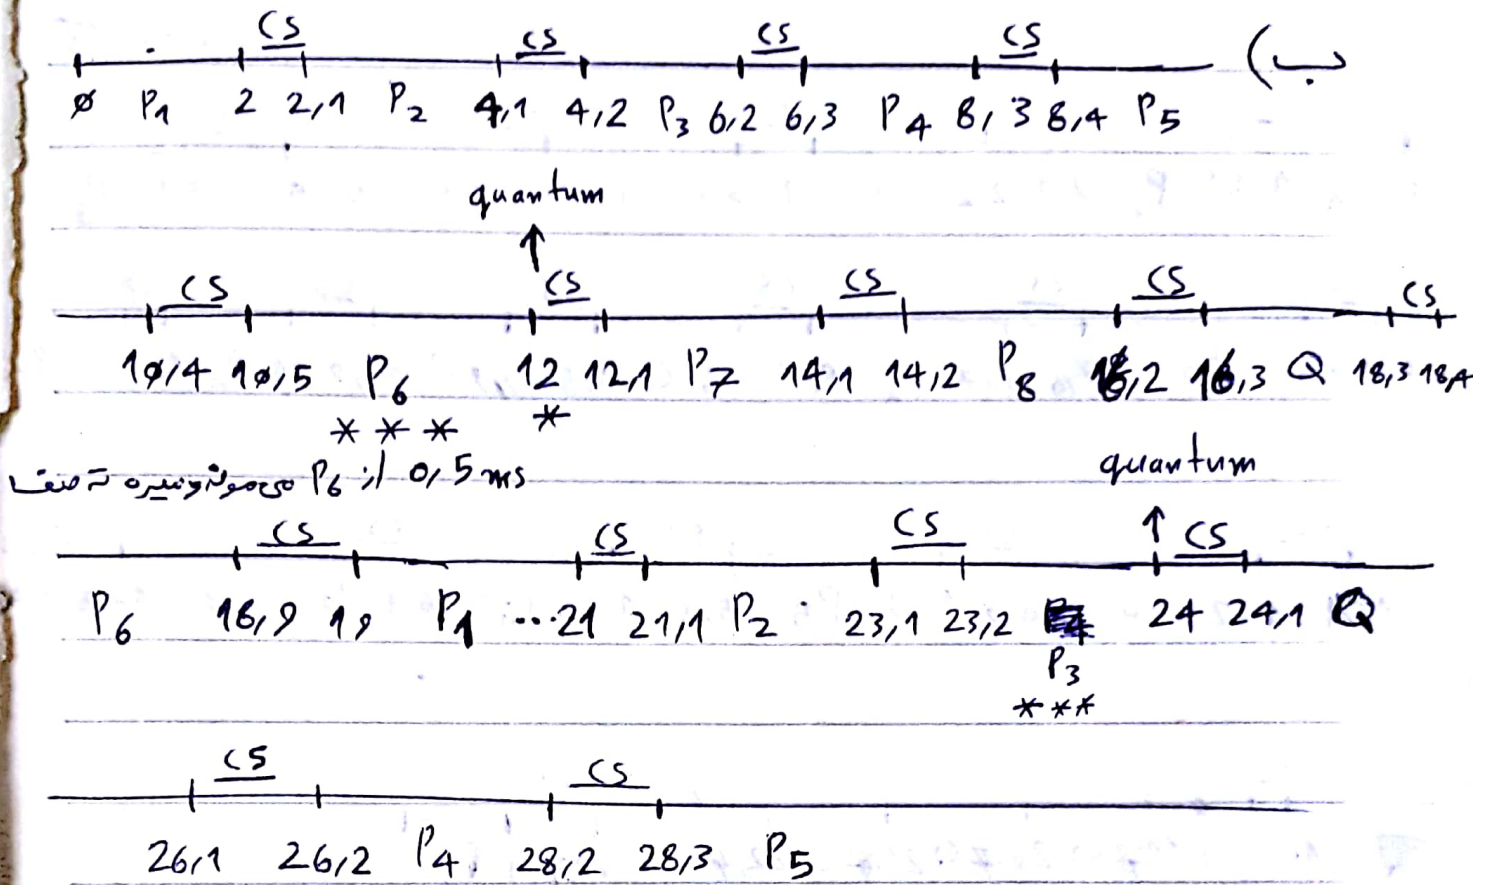 CS CS CS CS ب)
0 P1 2 2,1 P2 4,1 4,2 P3 6,2 6,3 P4 8,3 8,4 P5
quantum
CS CS CS CS CS
10,4 10,5 P6 12 12,1 P7 14,1 14,2 P8 16,2 16,3 Q 18,3 18,4
*** *
0,5 ms از P6 می‌مونه و میره ته صف
quantum
CS CS CS CS
P6 18,9 19 P1 ...21 21,1 P2 23,1 23,2 24 24,1 Q
P3
***
CS CS
26,1 26,2 P4 28,2 28,3 P5